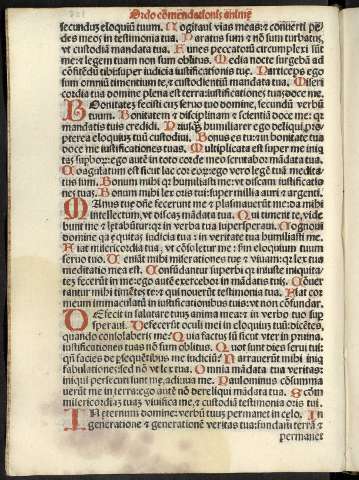 Ordo cōmendationis animę
secundū eloquiū tuum. Cogitaui vias meas: & conuerti pe
des meos in testimonia tua. Paratus sum & nō sum turbatus,
vt custodiā mandata tua. Funes peccatorū circumplexi sūt
me: & legem tuam non sum oblitus. Media nocte surgebā ad
cōfitēdū tibi: super iudicia iustificationis tuę. Particeps ego
sum omniū timentiū te, & custodientiū mandata tua. Miseri
cordia tua domine plena est terra: iustificationes tuas doce me.
Bonitatē fecisti cum seruo tuo domine, secundū verbū
tuum. Bonitatem & disciplinam & scientiā doce me: qa
mandatis tuis credidi. Priusq̄ humiliarer ego deliqui, pro-
pterea eloquiū tuū custodiui. Bonus es tu: in bonitate tua
doce me iustificationes tuas. Multiplicata est super me iniq
tas supbor: ego autē in toto corde meo scrutabor mādata tua.
Coagulatum est sicut lac cor eor: ego vero legē tuā medita
tus sum. Bonum mihi qr humiliasti me: vt discam iustificatio
nes tuas. Bonum mihi lex oris tui: super millia auri & argenti.
Manus tuę dñe fecerunt me & plasmauerūt me: da mihi
intellectum, vt discaz mādata tua. Qui timent te, vide
bunt me & lętabūtur: qa in verba tua supersperaui. Cognoui
domine qa ęquitas iudicia tua: & in veritate tua humiliasti me.
Fiat misericordia tua, vt cōsoletur me: scdm eloquium tuum
seruo tuo. Veniāt mihi miserationes tuę & viuam: qa lex tua
meditatio mea est. Confūdantur superbi qr iniuste iniquita
tez fecerūt in me: ego autē exercebor in mādatis tuis. Cōuer
tantur mihi timētes te: & qui nouerūt testimonia tua. Fiat cor
meum immaculatū in iustificationibus tuis: vt non cōfundar.
Defecit in salutare tuū anima mea: & in verbo tuo sup
speraui. Defecerūt oculi mei in eloquiuz tuū: dicētes,
quando consolaberis me: Quia factus sū sicut vter in pruina,
iustificationes tuas nō sum oblitus. Quot sunt dies serui tui:
qn̄ facies de p̄sequētibus me iudiciū? Narrauerūt mihi iniq
fabulationes: sed nō vt lex tua. Omnia mādata tua veritas:
iniqui persecuti sunt me, adiuua me. Paulominus cōsumma
uerūt me in terra: ego autē nō dereliqui mādata tua. Scdm
misericordiaz tuaz viuifica me, & custodiā testimonia oris tui.
In ęternum domine: verbū tuuz permanet in cęlo. In
generatione & generationē veritas tua: fundasti terrā &
permanet